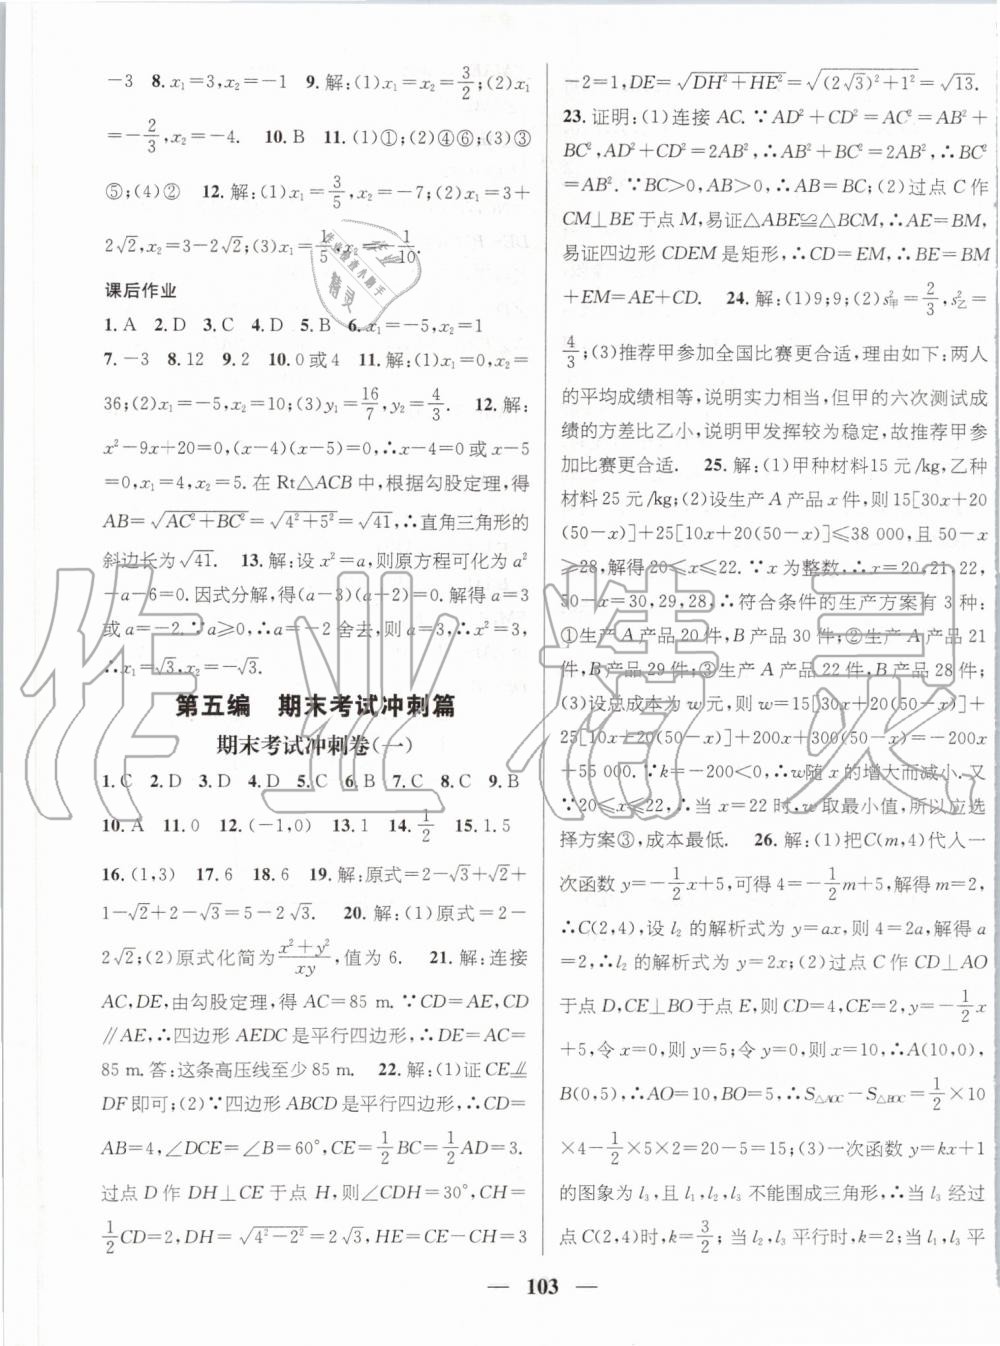 -3 8. x₁=3, x₂=-1 9. 解:(1)x₁=x₂=3/2;(2)x₁
=-2/3, x₂=-4. 10. B 11. (1)①;(2)④⑥;(3)③
⑤;(4)② 12. 解:(1)x₁=3/5, x₂=-7;(2)x₁=3+
2√2, x₂=3-2√2;(3)x₁=1/5, x₂=-1/10.
课后作业
1. A 2. D 3. C 4. D 5. B 6. x₁=-5, x₂=1
7. -3 8. 12 9. 2 10. 0或4 11. 解:(1)x₁=0, x₂=
36;(2)x₁=-5, x₂=10;(3)y₁=16/7, y₂=4/3. 12. 解:
x²-9x+20=0, (x-4)(x-5)=0, ∴x-4=0或x-5
=0, x₁=4, x₂=5. 在 Rt△ACB 中, 根据勾股定理, 得
AB=√(AC²+BC²)=√(4²+5²)=√41, ∴直角三角形的
斜边长为√41. 13. 解:设 x²=a, 则原方程可化为 a²
-a-6=0. 因式分解, 得(a-3)(a+2)=0. 解得 a=3
或 a=-2. ∵a≥0, ∴a=-2 舍去, 则 a=3, ∴x²=3,
∴x₁=√3, x₂=-√3.
第五编 期末考试冲刺篇
期末考试冲刺卷(一)
1. C 2. D 3. D 4. D 5. C 6. B 7. C 8. C 9. B
10. A 11. 0 12. (-1,0) 13. 1 14. 1/2 15. 1.5
16. (1,3) 17. 6 18. 6 19. 解:原式=2-√3+√2+
1-√2+2-√3=5-2√3. 20. 解:(1)原式=2-
2√2;(2)原式化简为(x²+y²)/xy, 值为 6. 21. 解:连接
AC, DE, 由勾股定理, 得 AC=85 m. ∵CD=AE, CD
∥AE, ∴四边形 AEDC 是平行四边形, ∴DE=AC=
85 m. 答:这条高压线至少 85 m. 22. 解:(1)证 CE⫽
DF 即可;(2)∵四边形 ABCD 是平行四边形, ∴CD=
AB=4, ∠DCE=∠B=60°, CE=1/2BC=1/2AD=3.
过点 D 作 DH⊥CE 于点 H, 则∠CDH=30°, CH=
1/2CD=2, DH=√(4²-2²)=2√3, HE=CE-CH=3
-2=1, DE=√(DH²+HE²)=√((2√3)²+1²)=√13.
23. 证明:(1)连接 AC. ∵AD²+CD²=AC²=AB²+
BC², AD²+CD²=2AB², ∴AB²+BC²=2AB², ∴BC²
=AB². ∵BC>0, AB>0, ∴AB=BC;(2)过点 C 作
CM⊥BE 于点 M, 易证△ABE≌△BCM, ∴AE=BM,
易证四边形 CDEM 是矩形, ∴CD=EM, ∴BE=BM
+EM=AE+CD. 24. 解:(1)9;9;(2)s²甲=2/3, s²乙=
4/3;(3)推荐甲参加全国比赛更合适, 理由如下:两人
的平均成绩相等, 说明实力相当, 但甲的六次测试成
绩的方差比乙小, 说明甲发挥较为稳定, 故推荐甲参
加比赛更合适. 25. 解:(1)甲种材料15 元/kg, 乙种
材料 25 元/kg;(2)设生产 A 产品 x 件, 则 15[30x+20
(50-x)]+25[10x+20(50-x)]≤38 000, 且 50-x
≥28, 解得 20≤x≤22. ∵x 为整数, ∴x=20, 21, 22,
50-x=30, 29, 28, ∴符合条件的生产方案有 3 种:
①生产 A 产品 20 件, B 产品 30 件;②生产 A 产品 21
件, B 产品 29 件;③生产 A 产品 22 件, B 产品 28 件;
(3)设总成本为 w 元, 则 w=15[30x+20(50-x)]+
25[10x+20(50-x)]+300x+300(50-x)=-100x
+55 000. ∵k=-100<0, ∴w 随 x 的增大而减小. 又
∵20≤x≤22, ∴当 x=22 时, w 取最小值, 所以应选
择方案③, 成本最低. 26. 解:(1)把 C(m,4)代入一
次函数 y=-1/2x+5, 可得 4=-1/2m+5, 解得 m=2,
∴C(2,4), 设 l₂ 的解析式为 y=ax, 则 4=2a, 解得 a
=2, ∴l₂ 的解析式为 y=2x;(2)过点 C 作 CD⊥AO
于点 D, CE⊥BO 于点 E, 则 CD=4, CE=2, y=-1/2x
+5, 令 x=0, 则 y=5, 令 y=0, 则 x=10, ∴A(10,0),
B(0,5), ∴AO=10, BO=5, ∴S△AOC-S△BOC=1/2×10
×4-1/2×5×2=20-5=15;(3)一次函数 y=kx+1
的图象为 l₃, 且 l₁, l₂, l₃ 不能围成三角形, ∴当 l₃ 经过
点 C(2,4)时, k=3/2; 当 l₂, l₃ 平行时, k=2; 当 l₁, l₃ 平
— 103 —
作业精灵